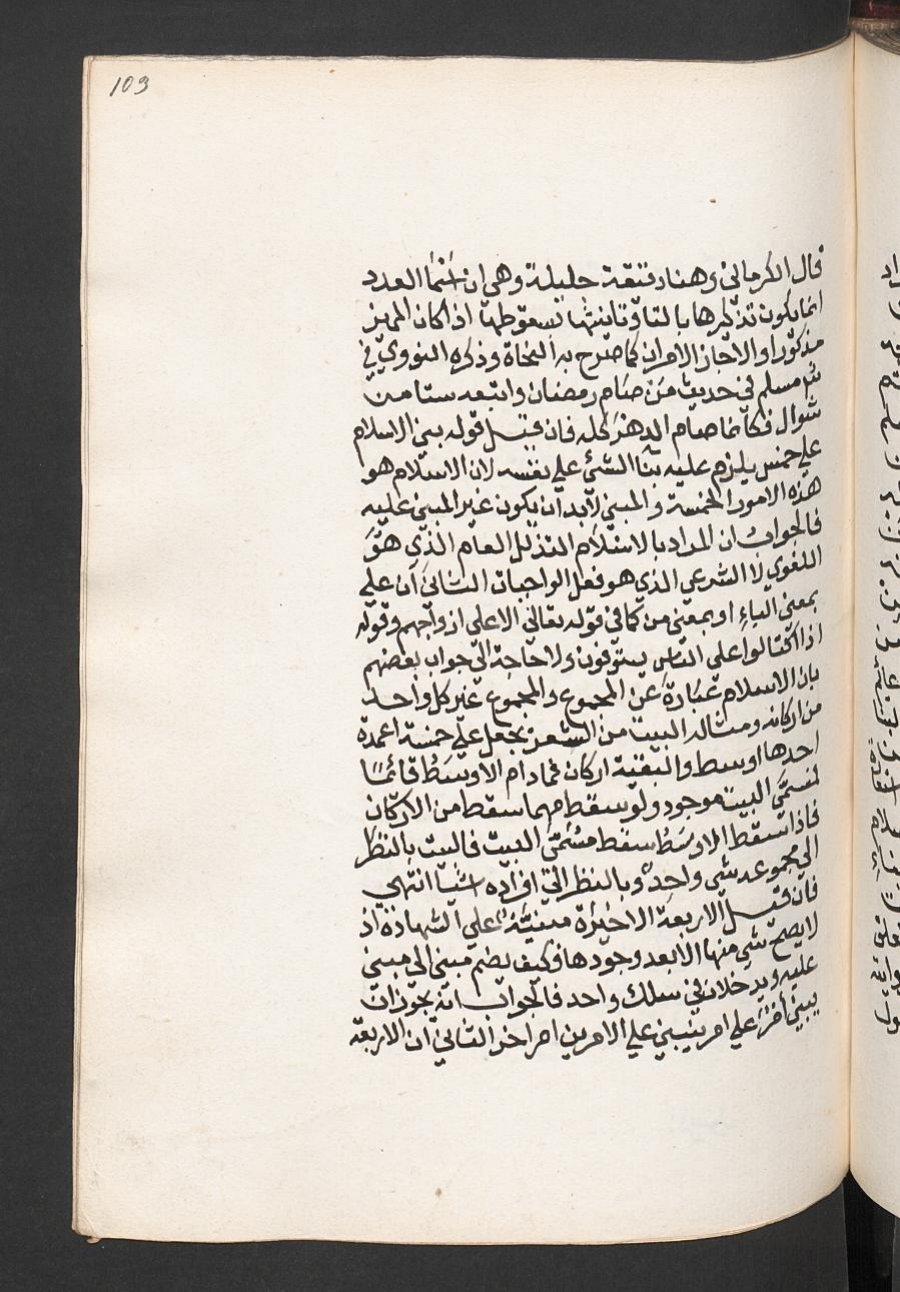 103
قال الكرماني وهنا دقيقة جليلة وهي ان اسما العدد
انما يكون تذكيرها بالتا وتانيثها بسقوطها اذا كان المميز
مذكورا والا جاز الامران كما صرح به النحاة وذكره النووي في
شم مسلم في حديث من صام رمضان واتبعه ستا من
شوال فكانما صام الدهر كله فان قيل قوله بني الاسلام
على خمس يلزم عليه بنا الشئ على نفسه لان الاسلام هو
هذه الامور الخمسة والمبني لا بد ان يكون غير المبني عليه
فالجواب ان المراد بالاسلام التذلل العام الذي هو
اللغوي لا الشرعي الذي هو فعل الواجبات الثاني ان على
بمعنى الباء او بمعنى من كما في قوله تعالى الا على ازواجهم وقوله
اذا اكتالوا على الناس يستوفون ولا حاجة الى جواب بعضهم
بان الاسلام عبارة عن المجموع والمجموع غير كل واحد
من اركانه ومثاله البيت من الشعر يجعل على خمسة اعمدة
احدها اوسط والبقية اركان فما دام الاوسط قائما
فمسمى البيت موجود ولو سقط مهما سقط من الاركان
فاذا سقط الاوسط سقط مسمى البيت فالبيت بالنظر
الى مجموعه شي واحد وبالنظر الى افراده اشيا انتهى
فان قيل الاربعة الاخيرة مبنية على الشهادة اذ
لا يصح شي منها الا بعد وجودها فكيف يضم مبني الى مبني
عليه ويدخلان في سلك واحد فالجواب انه يجوز ان
يبنى امر على امر ينبني على الامرين امر اخر الثاني ان الاربعة